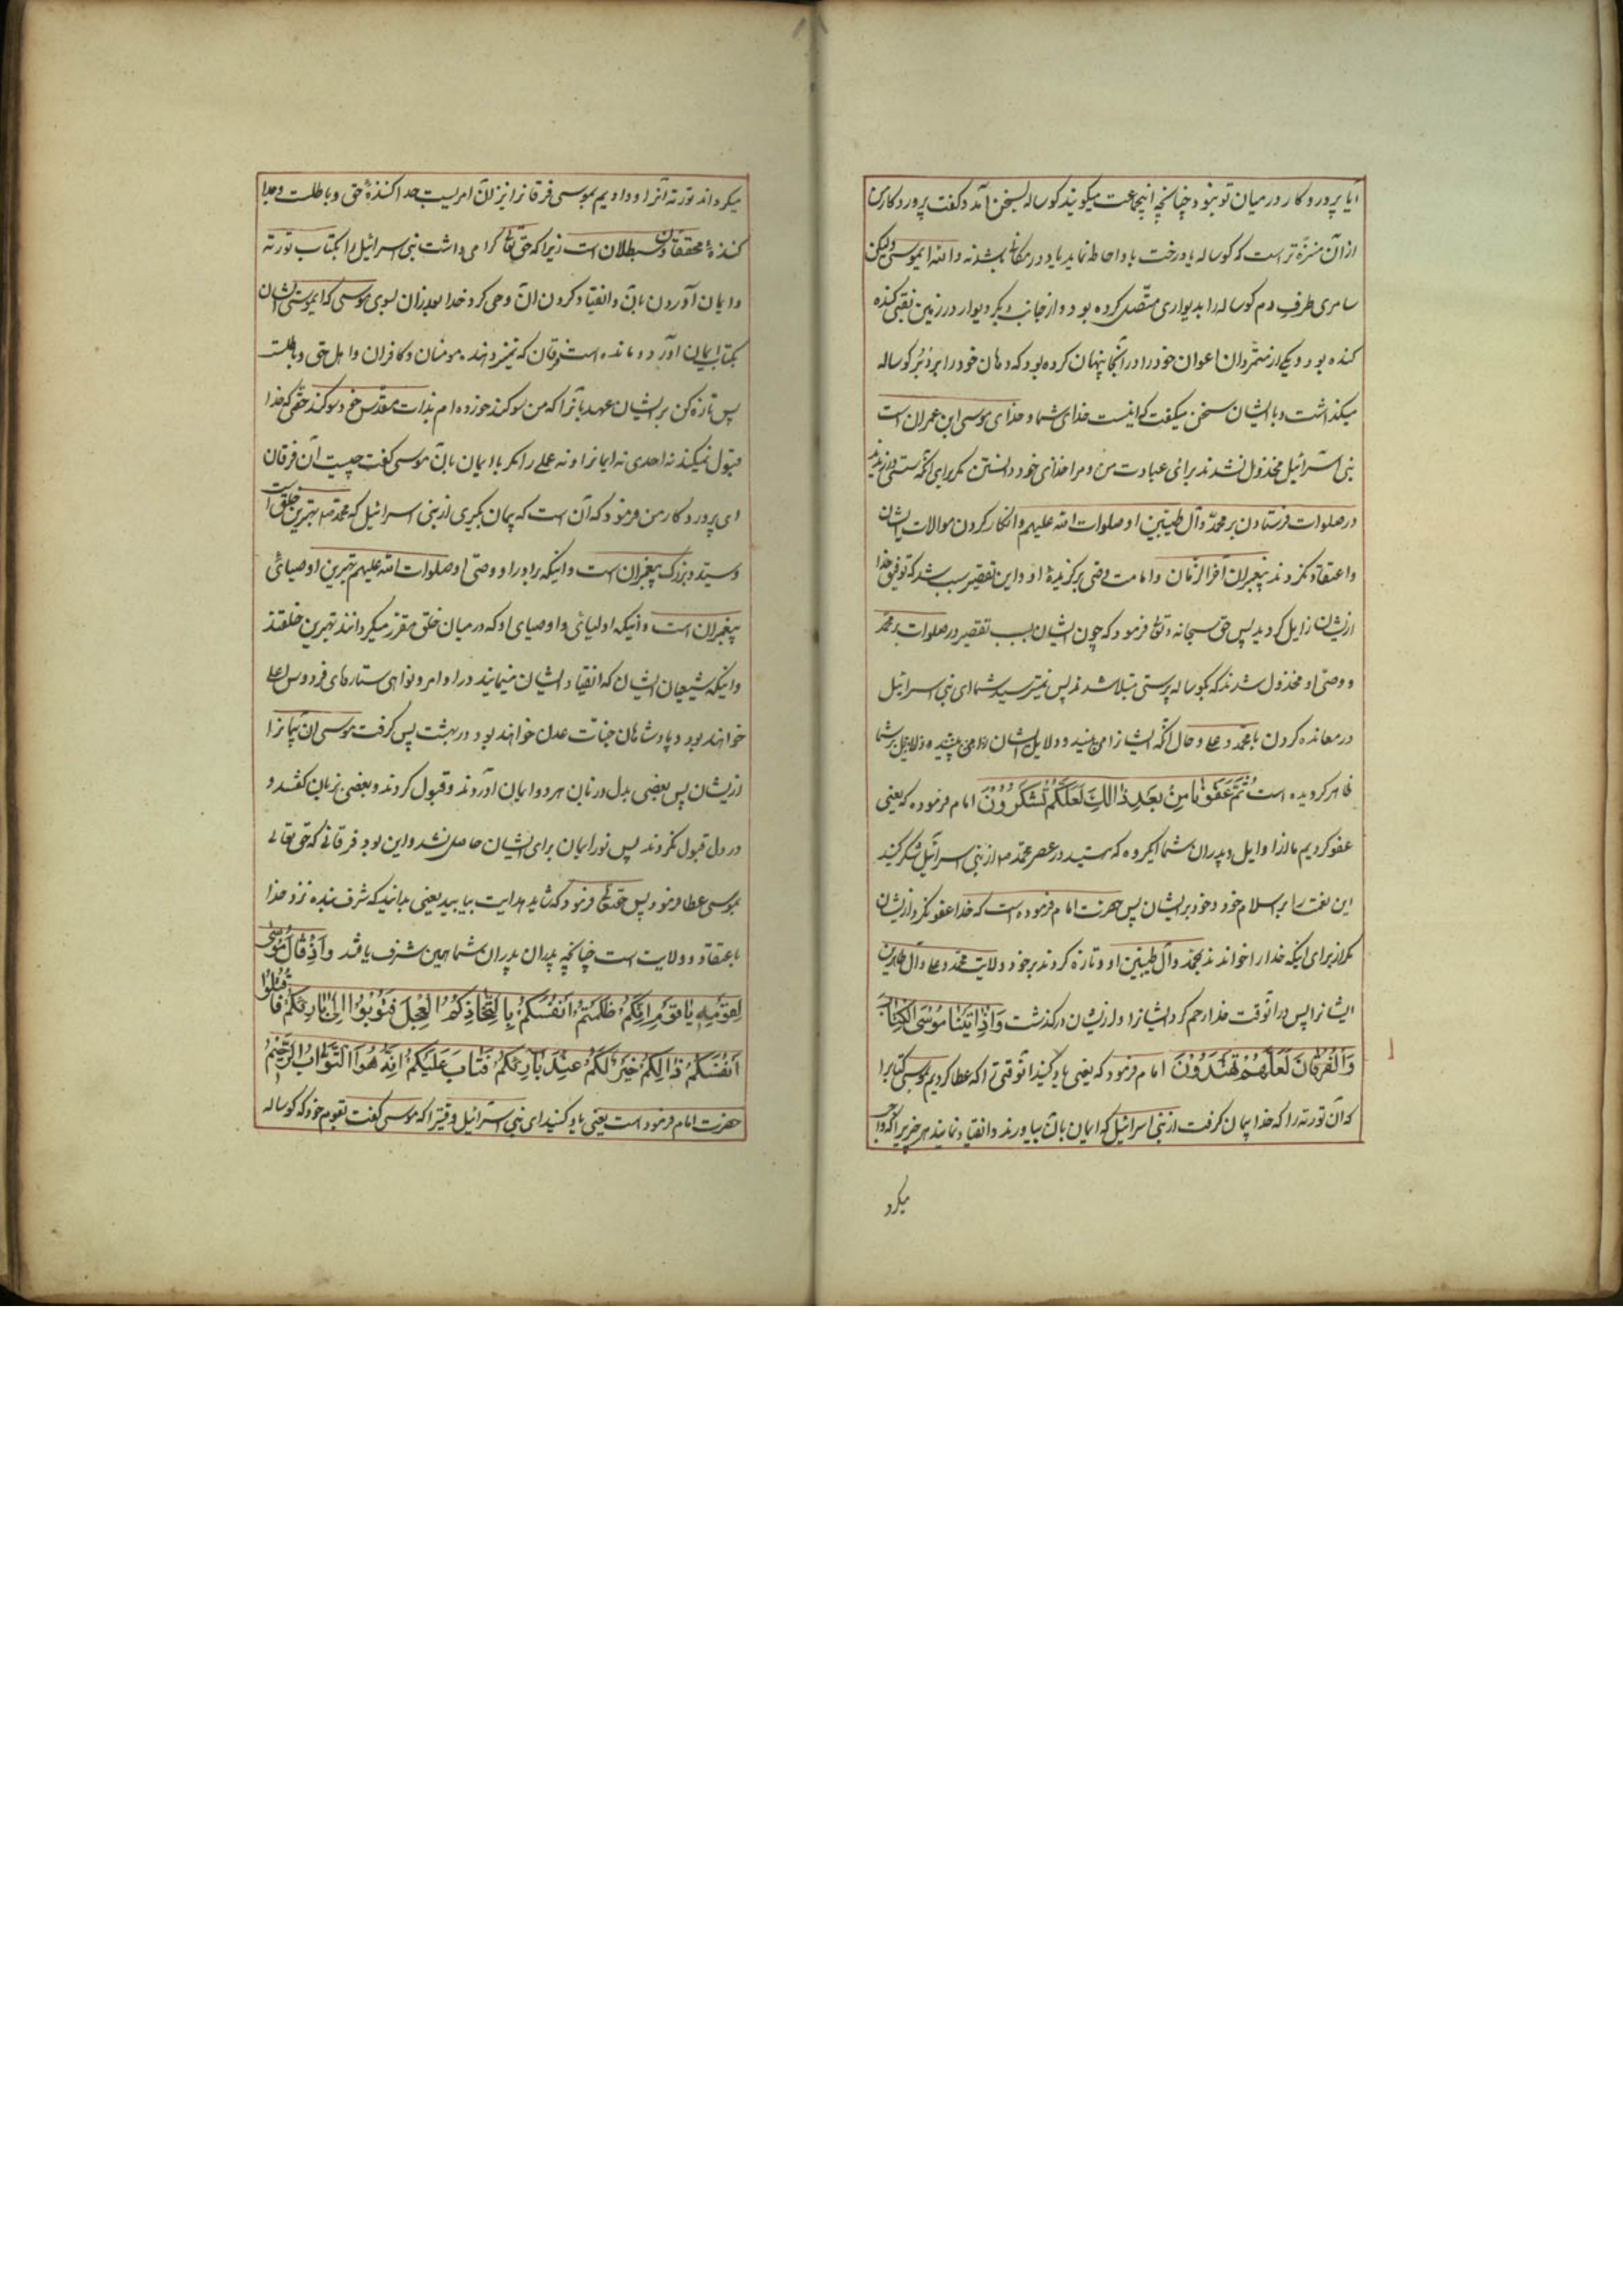 آیا پروردکار در میان تو نبود چنانچه اینجماعت میکویند کوساله بسخن آمد و کفت پروردکار من
از آن منزه تر است که کوساله یا درخت باو احاطه نماید یا در مکانی باشد نه والله ایموسی ولیکن
سامری طرف دم کوساله را بدیواری متصل کرده بود و از جانب دیکر دیوار در زمین نقبی کنده
کنده بود و یکی از متمردان اعوان خود را در آنجا پنهان کرده بود که دهان خود را بر دبر کوساله
میکذاشت و با ایشان سخن میکفت که اینست خدای شما و خدای موسی ابن عمران است
بنی اسرائیل مخذول نشدند برای عبادت من و مرا خدای خود دانستن مکر برای آنکه سستی ورزیدند
در صلوات فرستادن بر محمد و آل طیبین او صلوات الله علیهم و انکار کردن موالات ایشان
و اعتقاد نکردند پیغمبران آخر الزمان و امامت وصی برکزیدۀ او و این تقصیر سبب شد که توفیق خدا
ازیشان زایل کردید پس حق سبحانه و تعالی فرمود که چون ایشان بسبب تقصیر در صلوات بر محمد
و وصی او مخذول شدند که بکوساله پرستی مبتلا شدند پس نمیترسید شما ای بنی اسرائیل
در معانده کردن با محمد و علی و حال آنکه ایشانرا می بینید و دلایل ایشان را می بینید و دلایل بر شما
ظاهر کردیده است ثُمَّ عَفَوْنَا مِنْ بَعْدِ ذَالِكَ لَعَلَّكُمْ تَشْكُرُونَ امام فرموده که یعنی
عفو کردیم ما از اوایل و پدران شما ایکروه که هستید در عصر محمد ص از بنی اسرائیل شکر کنید
این نعمت را بر اسلاف خود و خود بر ایشان پس حضرت امام فرموده است که خدا عفو نکرد ازیشان
مکر از برای اینکه خدا را خواندند بمحمد و آل طیبین او و تازه کردند بر خود ولایت محمد و علی و آل طاهرین
ایشانرا پس در آنوقت خدا رحم کرد ایشانرا و ازیشان درکذشت وَاِذْ اٰتَيْنَا مُوسَى الْكِتَابَ
وَالْفُرْقَانَ لَعَلَّكُمْ تَهْتَدُونَ امام فرمود که یعنی یاد کنید آنوقتی را که عطا کردیم بموسی کتابرا
که آن توریة را که خدا پیمان کرفت از بنی اسرائیل که ایمان بآن بیاورند و انقیاد نمایند هر چیزیرا که واجب
میکرد
میکرداند توریة آنرا و دادیم بموسی فرقانرا نیز آن امریست جدا کنندۀ حق و باطلست و جدا
کنندۀ محققان و مبطلان است زیرا که حق تعالی کرامی داشت بنی اسرائیل را بکتاب توریة
و ایمان آوردن بآن و انقیاد کردن آن وحی کرد خدا بعد از آن بسوی موسی که ایموسی ایشان
بکتاب ایمان آوردند و مانده است فرقان که تمیز دهنده مومنان و کافران و اهل حق و باطلست
پس تازه کن بر ایشان عهد بآنرا که من سوکند خورده ام بذات مقدس خود سوکند حقی که خدا
قبول نمیکند نه احدی نه ایمانرا و نه عملی را مکر با ایمان بآن موسی کفت چیست آن فرقان
ای پروردکار من فرمود که آن است که پیمان بکیری از بنی اسرائیل که محمد ص بهترین خلق است
و سید و بزرک پیغمبران است و اینکه برادر او و وصی او صلوات الله علیهم بهترین اوصیای
پیغمبران است و اینکه اولیائی و اوصیای او که در میان خلق مقرر میکرداند بهترین خلقند
و اینکه شیعیان ایشان که انقیاد ایشان مینمایند در اوامر و نواهی ستارهای فردوس اعلی
خواهند بود و پادشاهان جنات عدن خواهند بود در بهشت پس کرفت موسی آن پیمانرا
ازیشان پس بعضی بدل و زبان هر دو ایمان آوردند و قبول کردند و بعضی بزبان کفتند و
در دل قبول نکردند پس نور ایمان برای ایشان حاصل نشد و این بود فرقانی که حق تعالی
بموسی عطا فرمود پس حقتعالی فرمود که شاید هدایت بیابید یعنی بدانید که شرف بنده نزد خدا
باعتقاد و ولایت است چنانچه پدران پدران شما بهمین شرف یافتند وَاِذْ قَالَ مُوسٰى
لِقَوْمِهِ يَا قَوْمِ اِنَّكُمْ ظَلَمْتُمْ اَنْفُسَكُمْ بِاتِّخَاذِكُمُ الْعِجْلَ فَتُوبُوا اِلٰى بَارِئِكُمْ فَاقْتُلُوا
اَنْفُسَكُمْ ذَالِكُمْ خَيْرٌ لَكُمْ عِنْدَ بَارِئِكُمْ فَتَابَ عَلَيْكُمْ اِنَّهُ هُوَ التَّوَّابُ الرَّحِيمُ
حضرت امام فرمود است یعنی یاد کنید ای بنی اسرائیل وقتیرا که موسی کفت بقوم خود که کوساله